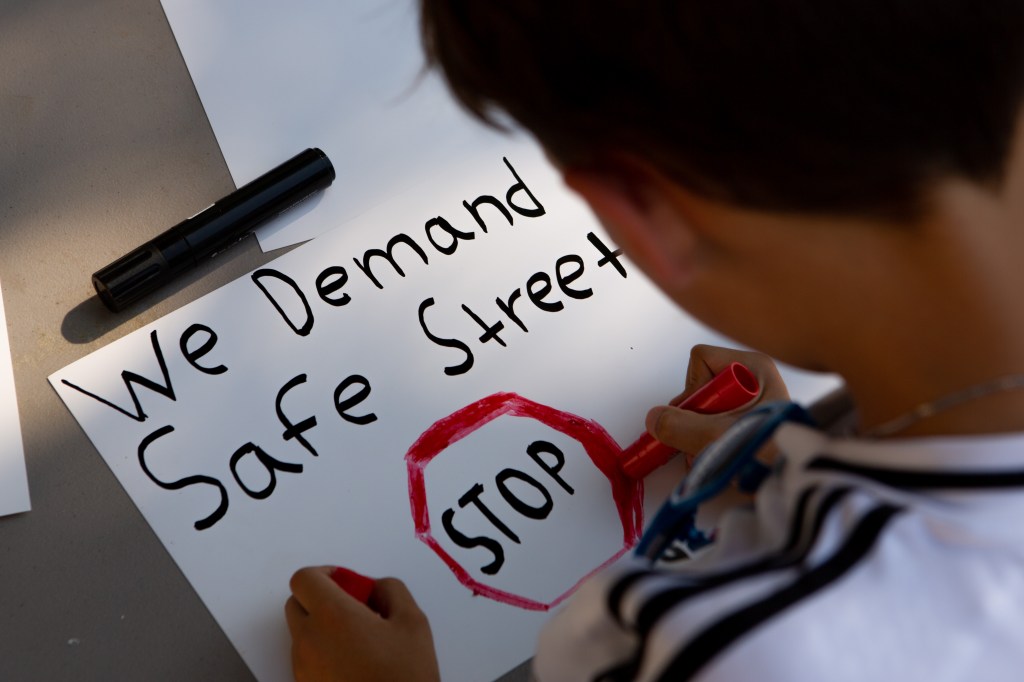 We Demand
Safe Street
STOP